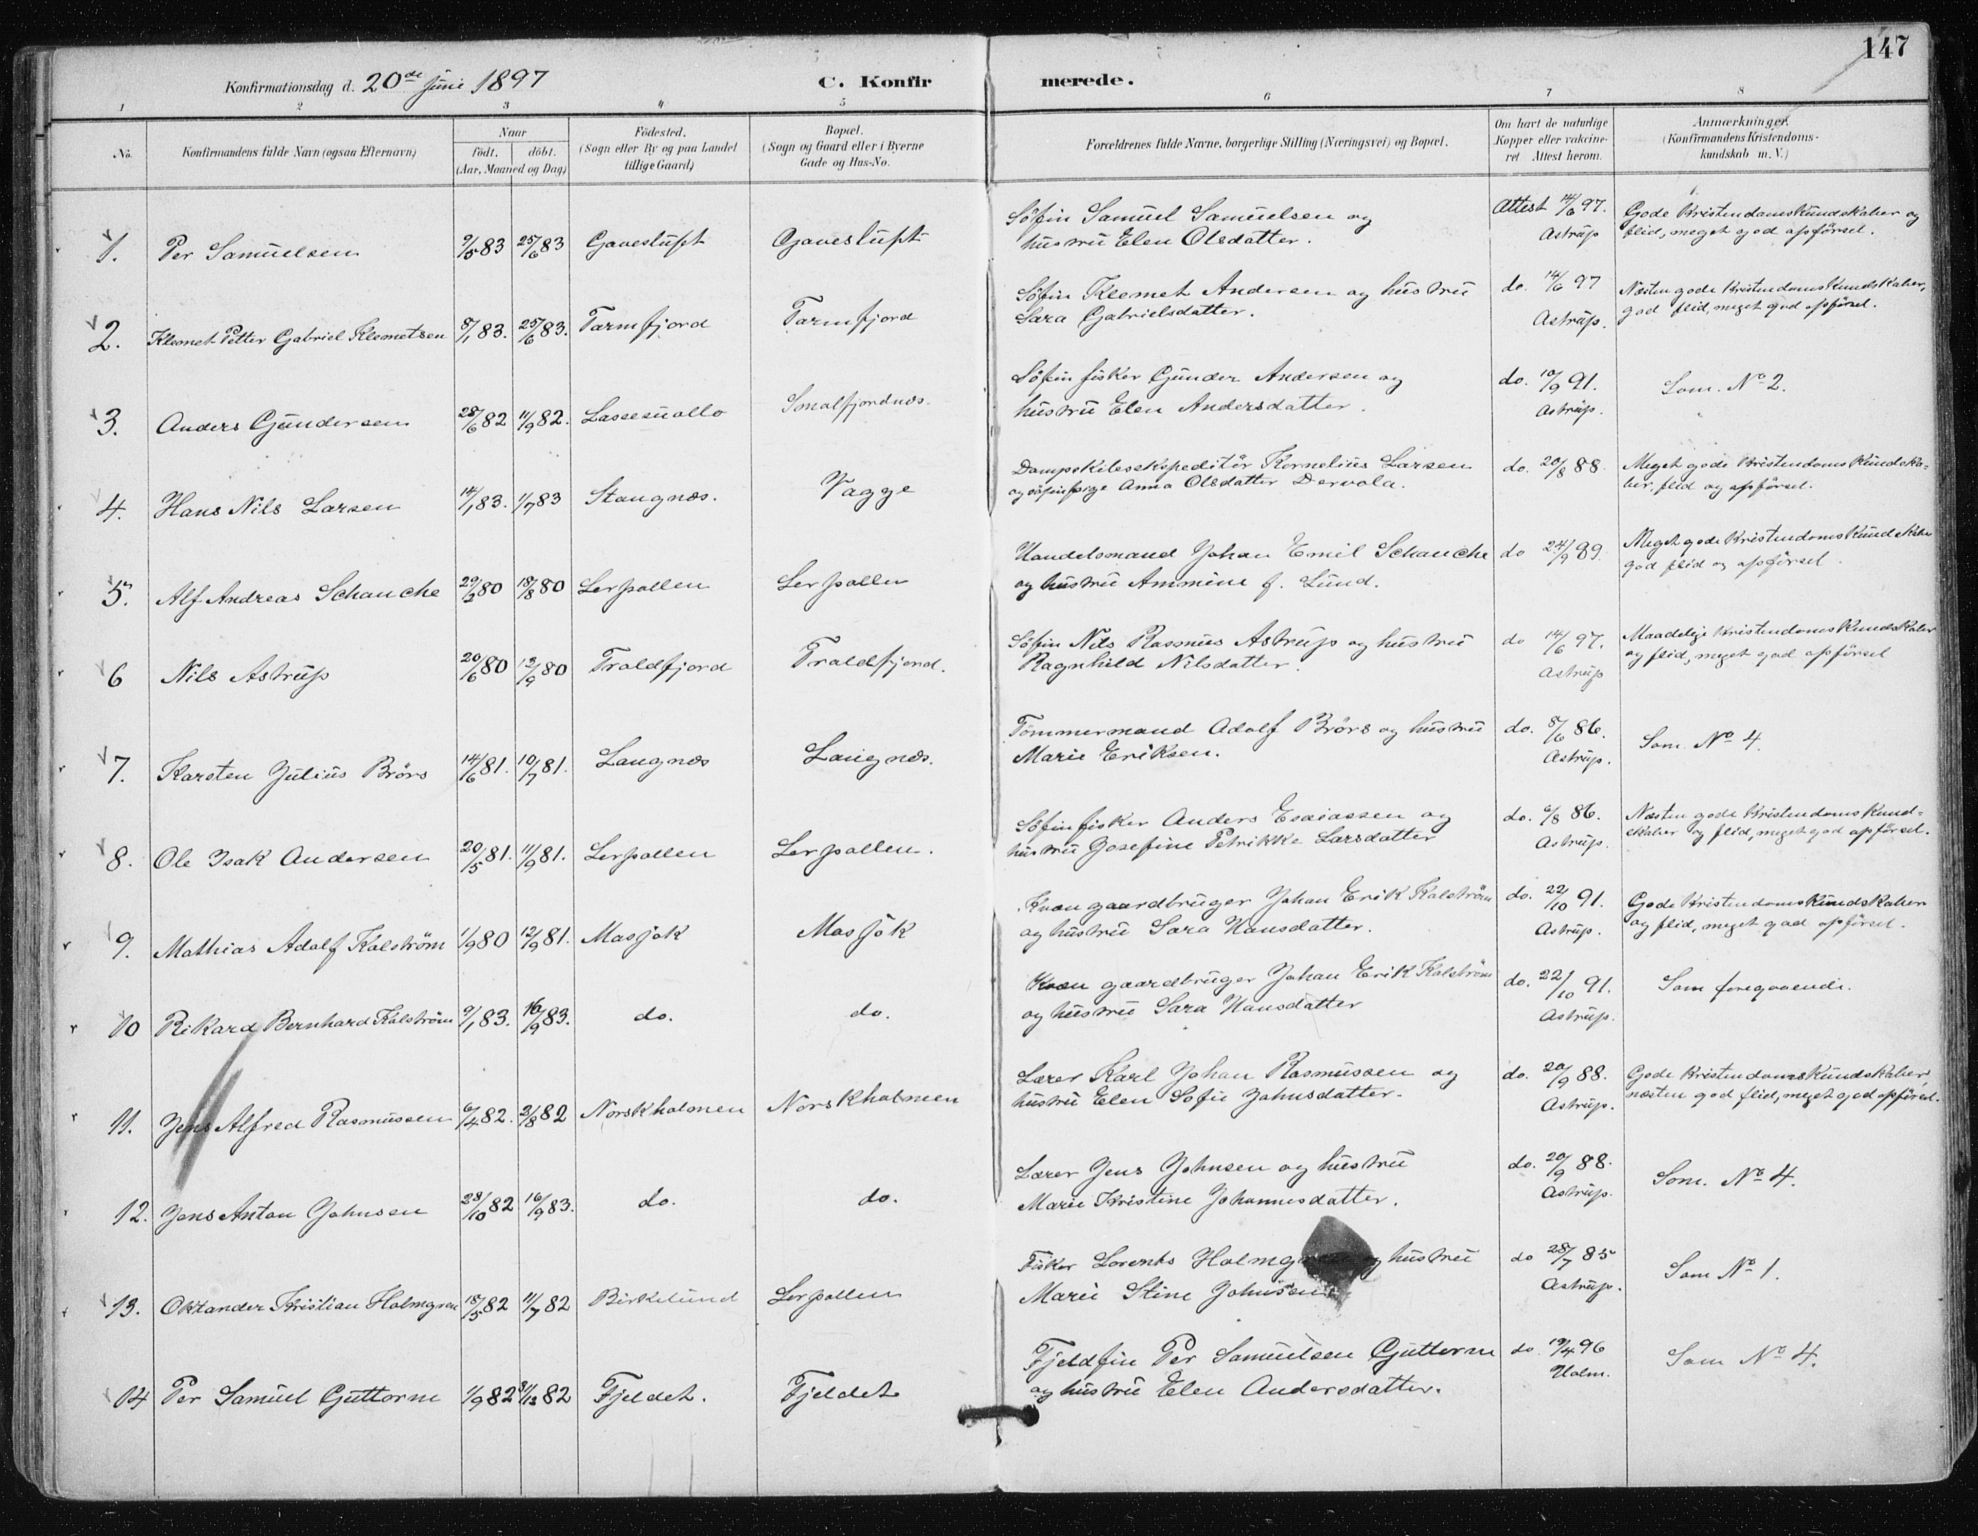 147
Konfirmationsdag d. 20de Juni 1897 C. Konfirmerede.
1 2 3 4 5 6 7 8
No. Konfirmandens fulde Navn (ogsaa Efternavn) Naar født. døbt. (Aar, Maaned og Dag) Födested. (Sogn eller By og paa Landet tillige Gaard) Bopæl. (Sogn og Gaard eller i Byerne Gade og Hus-No. Forældrenes fulde Navne, borgerlige Stilling (Næringsvei) og Bopæl. Om havt de naturlige Kopper eller vakcineret. Attest herom. Anmærkninger. (Konfirmandens Kristendomskundskab m. V.)
1. Per Samuelsen 9/5 83 25/6 83 Gavesluft Gavesluft Söfin Samuel Samuelsen og
hustru Elen Olsdatter. Attest 14/6 97. Astrup Gode Kristendomskundskaber og
flid, meget god opförsel.
2. Klemet Petter Gabriel Klemetsen 8/1 83. 25/6 83. Tarmfjord Tarmfjord Söfin Klemet Andersen og hustru
Sara Gabrielsdatter. do. 14/6 97 Astrup. Næsten gode Kristendomskundskaber,
god flid, meget god opförsel.
3. Anders Gundersen 28/6 82 11/9 82. Lassesuollo Smalfjordnæs. Söfin fisker Gunder Andersen og
hustru Elen Andersdatter. do. 10/9 91. Astrup. Som. No 2.
4. Hans Nils Larsen 14/1 83. 1/7 83 Stangnæs. Vagge Dampskibsekspeditör Kornelius Larsen
og söfinpige Anna Olsdatter Dervola. do. 20/8 88. Meget gode Kristendomskundska-
ber, flid og opförsel.
5. Alf Andreas Schanche 29/2 80 18/8 80 Lerpollen Lerpollen Handelsmand Johan Emil Schanche
og hustru Ammine f. Lund. do 24/9 89. Meget gode Kristendomskundskaber
god flid og opförsel.
6 Nils Astrup 20/6 80 12/9 80 Troldfjord Troldfjord. Söfin Nils Rasmus Astrup og hustru
Ragnhild Nilsdatter. do 14/6 97. Astrup Maadelige Kristendomskundskaber
og flid, meget god opförsel
7. Karsten Julius Brörs 14/6 81. 10/7 81. Langnæs Langnæs. Tömmermand Adolf Brörs og hustru
Marie Eriksen. do. 8/6 86. Astrup. Som. No 4.
8. Ole Isak Andersen 20/5 81. 11/9 81. Lerpollen Lerpollen. Söfinfisker Anders Esaiassen og
hustru Josefine Petrikke Larsdatter do. 6/8 86. Astrup. Næsten gode Kristendomskund-
skaber og flid, meget god opförsel.
9. Mathias Adolf Kalström 1/9 80 12/9 81. Masjok Masjok Kvæn gaardbruger Johan Erik Kalström
og hustru Sara Hansdatter. do. 22/10 91. Astrup. Gode Kristendomskundskaber
og flid, meget god opförsel.
10 Rikard Bernhard Kalström 9/1 83. 16/9 83. do. do. Kvæn gaardbruger Johan Erik Kalström
og hustru Sara Hansdatter do. 22/10 91. Astrup. Som foregaaende.
11. Jens Alfred Rasmussen 6/4 82. 3/8 82 Norskholmen Norskholmen Lærer Karl Johan Rasmussen og
hustru Elen Sofie Johnsdatter. do. 20/9 88. Astrup. Gode Kristendomskundskaber,
næsten god flid, meget god opförsel.
12. Jens Anton Johnsen 28/10 82 16/9 83. do. do. Lærer Jens Johnsen og hustru
Marie Kristine Johannesdatter. do. 20/9 88. Astrup. Som. No 4.
13. Oktander Kristian Holmgren 18/5 82 11/7 82 Birkelund Lerpollen Fisker Lorents og hustru
Marie Stine Johnsen do 28/7 85 Astrup. Som No 1.
14 Per Samuel Guttorm 1/9 82 82 Fjeldet. Fjeldet Fjeldfin Per Samuelsen Guttorm
og hustru Elen Andersdatter. do. 19/4 96 Holm. Som No 4.